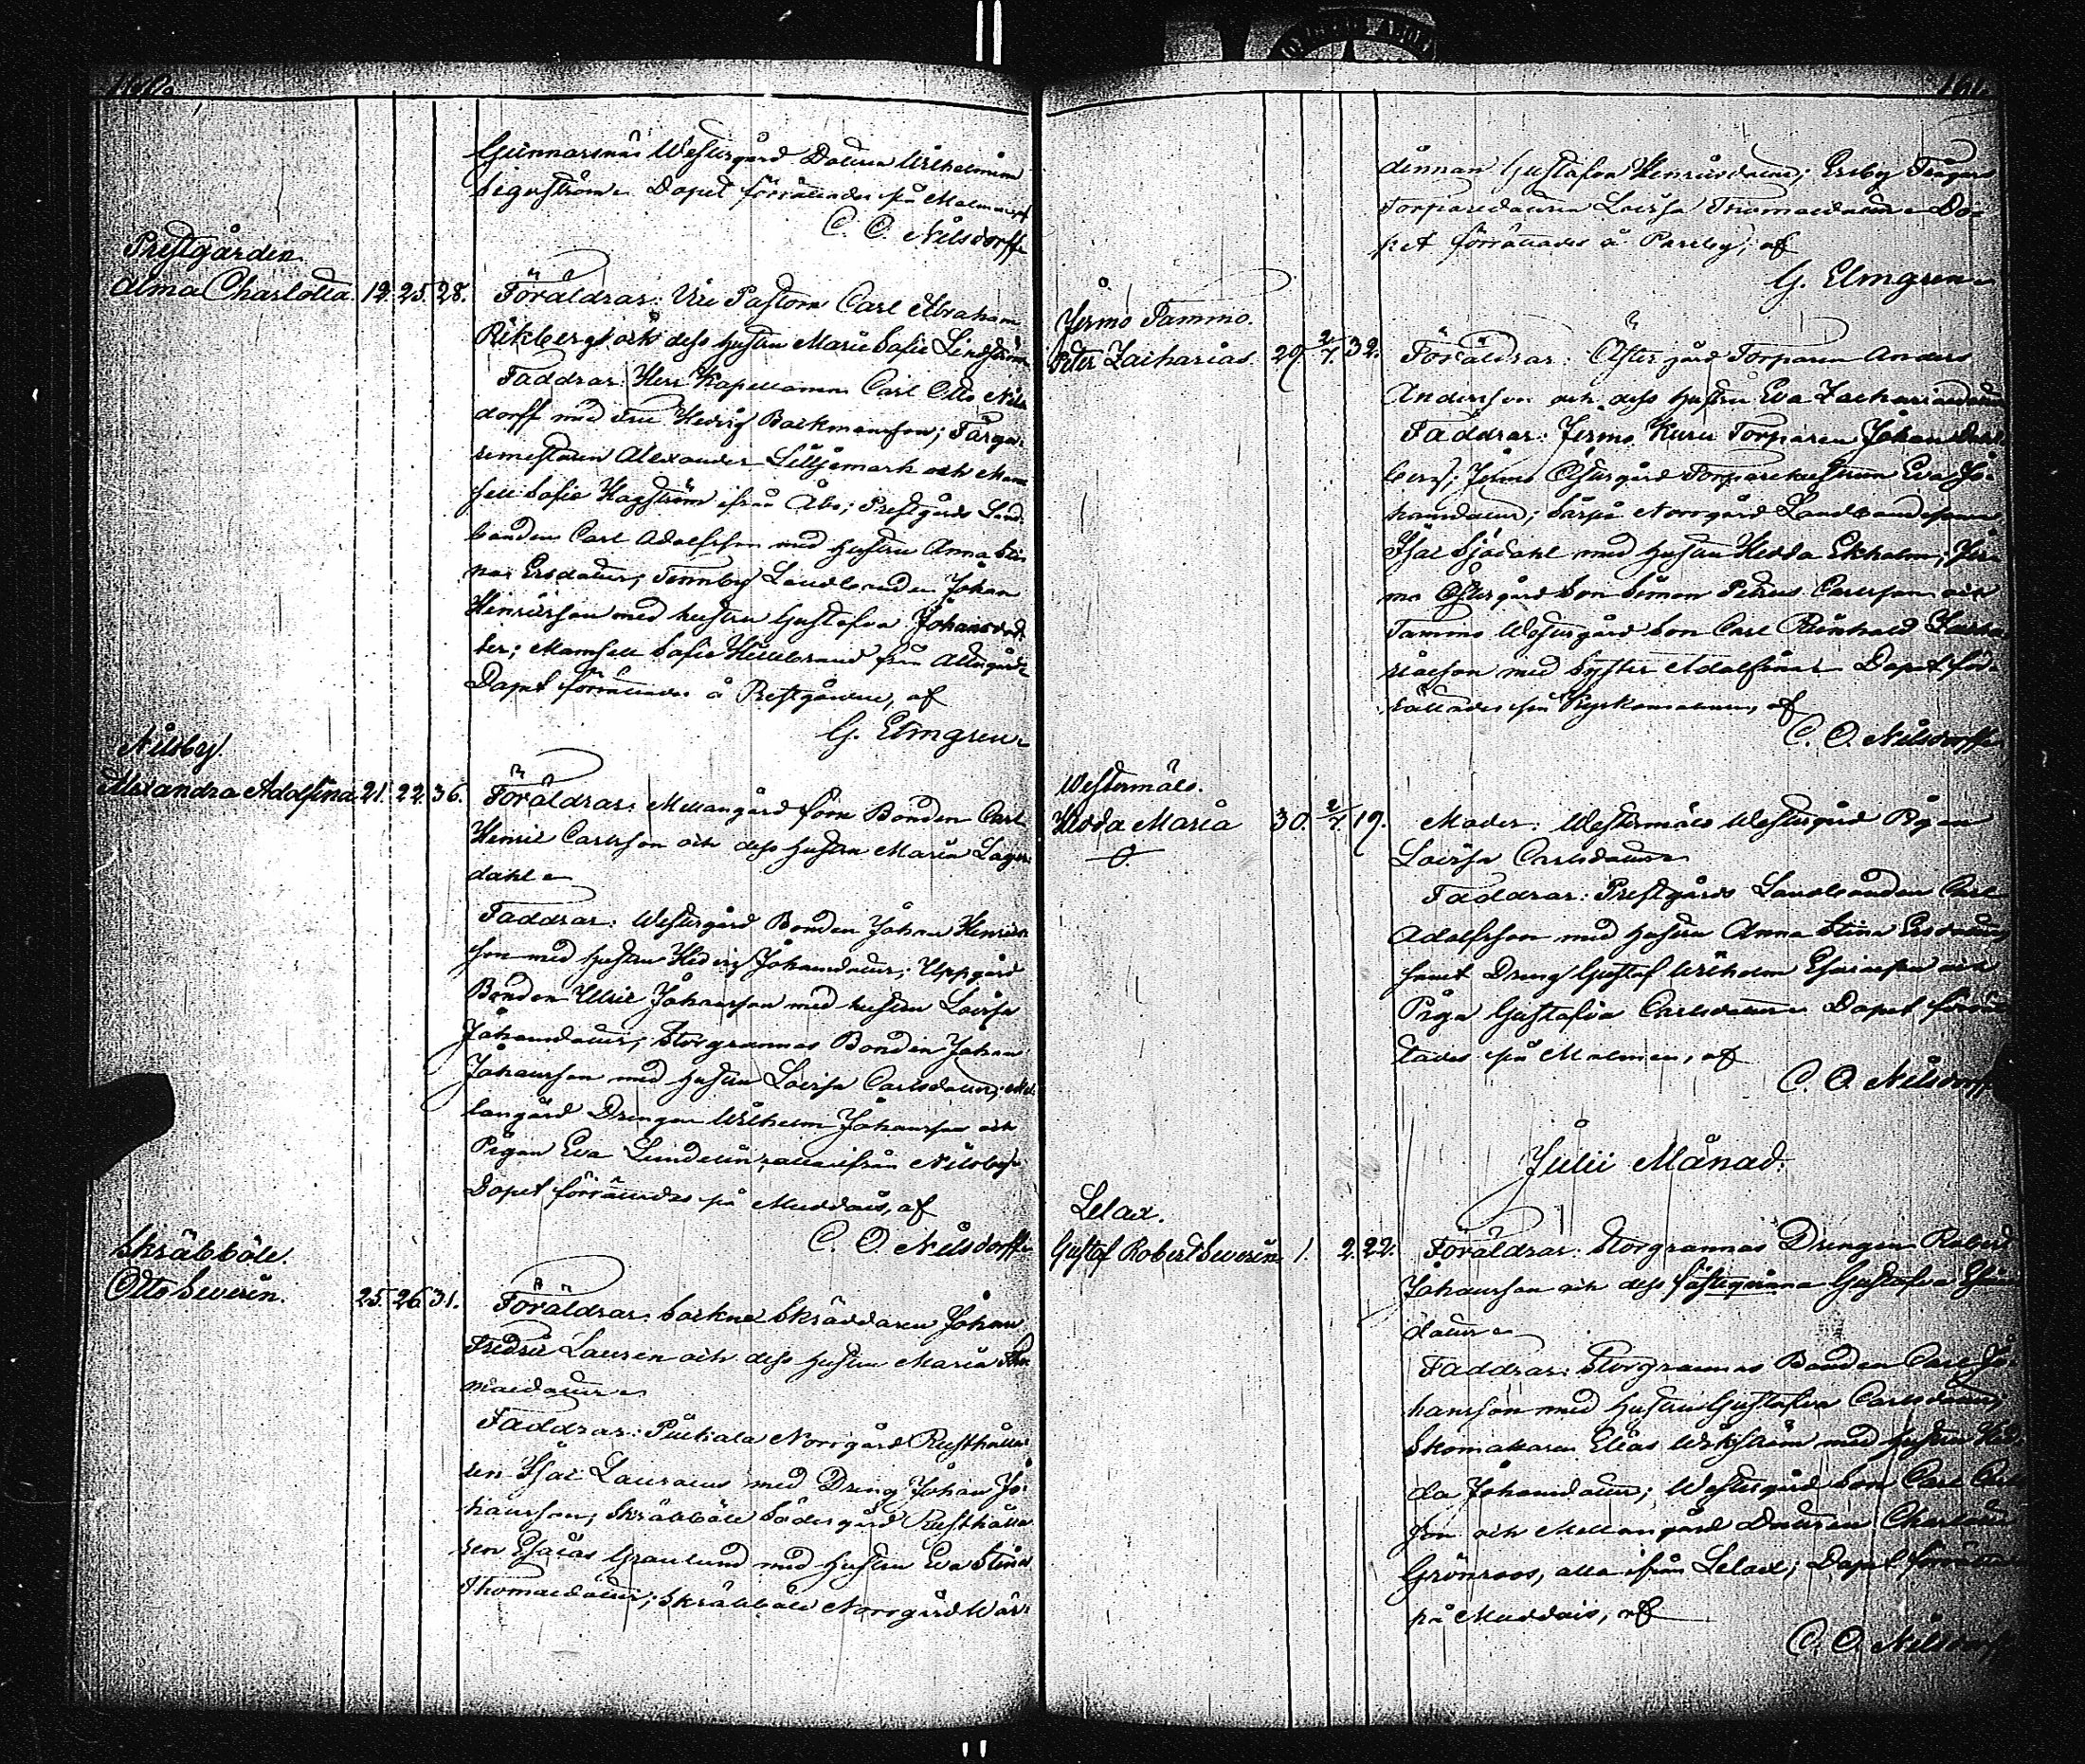 Gunnarsnäs Westergård Dottren Wilhelmina
Segerström. Dopet förrättades på Malmen, af
C. O. Nilsdorff
Prestgården.
Alma Charlotta. 12. 25. 28. Föräldrar: Vice Pastorn Carl Abraham
Rikberg och dess hustru Maria Sofia Lindström
Faddrar: Herr Kapellanen Carl Otto Nils
dorff med Fru Hedvig Backmansson; Färga-
remästaren Alexander Lilljemark och Mam
sell Sofie Hagström ifrån Åbo; Prestgårds Land
bonden Carl Adolfsson med hustru Anna Sti
na Ersdotter; Tennby Landbonden Johan
Henriksson med hustru Gustafva Johansdot
ter; Mamsell Sofie Hillebrand från
Dopet förrättades å Prestgården, af
G. Elmgren
Nilsby.
Alexandra Adolfina. 21. 22. 36. Föräldrar: Mellangård Bonden Carl
Henric Carlsson och dess hustru Maria Lager
dahl
Faddrar: Westergård Bonden Johan Henrics
son med hustru Hedvig Johansdotter; Uppgård
Bonden Ulric Johansson med hustru Lovisa
Johansdotter; Storgrannas Bonden Johan
Johansson med hustru Lovisa Carlsdotter; Mel
langård Drengen Wilhelm Johansson och
Pigan Eva Lundelin, alla ifrån Nilsby.
Dopet förrättades på Muddais, af
C. O. Nilsdorff
Skräbböle.
Otto Severin. 25. 26. 31. Föräldrar: Sockne Skräddaren Johan
Fredric Lauren och dess hustru Maria Tho
masdotter
Faddrar: Norrgård Rusthålla
ren Isac Lauraeus med Dreng Johan Jo
hansson; Skräbböle Södergård Rusthålla
ren Esaias Granlund med hustru Eva Stina
Thomasdotter; Skräbböle Norrgård Vär-
dinnan Gustafva Henricsdotter; Ersby
Torparedottren Lovisa Thomasdotter. Do-
pet förrättades å Pareby, af
G. Elmgren
Jermo Tammo.
Peter Zacharias. 29. 2/7. 32. Föräldrar: Östergård Torparen Anders
Andersson och dess hustru Eva Zachariasdotter
Faddrar: Jermo Kuru Torparen Johan
berg; Jermo Östergård Torparehustrun Eva Jo
hansdotter; Särpå Norrgård Landbonden
Isac Sjödahl med hustru Hedda Ekholm; Jer
mo Östergård Son Simon Petrus Carlsson och
Tammo Westergård Son Carl Reinhold Zacha
riasson med Syster Adolfina. Dopet för-
rättades på Kyrkomalmen, af
C. O. Nilsdorff
Westermälö.
Hedda Maria 30. 2/7. 19. Moder: Westermälö Westergård Pigan
Lovisa Carlsdotter
Faddrar: Prestgårds Landbonden Carl
Adolfsson med hustru Anna Stina Ersdotter
samt Dreng Gustaf Wilhelm Esaiasson och
Piga Gustafva Carlsdotter. Dopet förrät
tades på Malmen, af
C. O. Nilsdorff
Julii Månad.
Lelax.
Gustaf Robert Severin 1. 2. 22. Föräldrar: Storgrannas Drengen Robert
Johansson och dess fästeqvinna Gustafva
dotter
Faddrar: Storgrannas Bonden Carl Jo
hansson med hustru Gustafva Carlsdotter;
Skomakaren Elias Wikström med hustru Hed
da Johansdotter; Westergård Son Carl Carls
son och Mellangård Dottren Charlotta
Grönroos, alla ifrån Lelax; Dopet förrättades
på Muddais, af
C. O. Nilsdorff